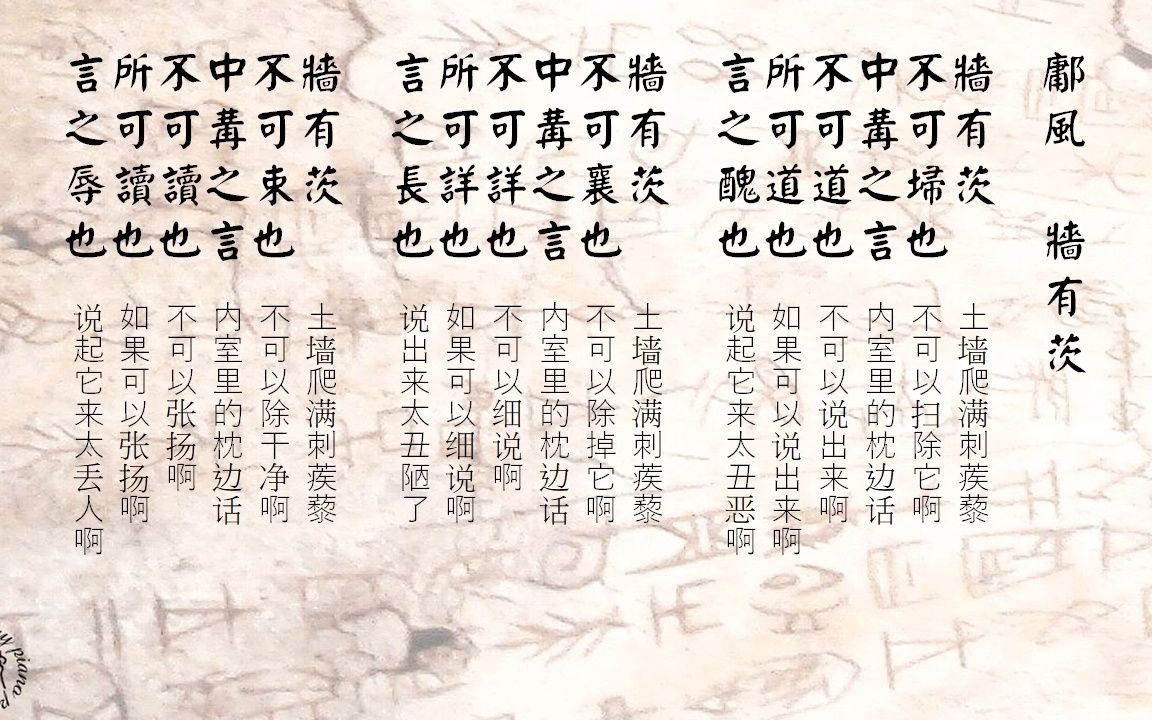 鄘風 牆有茨
牆有茨
不可埽也
中冓之言
不可道也
所可道也
言之醜也
土墙爬满刺蒺藜
不可以扫除它啊
内室里的枕边话
不可以说出来啊
如果可以说出来啊
说起它来太丑恶啊
牆有茨
不可襄也
中冓之言
不可詳也
所可詳也
言之長也
土墙爬满刺蒺藜
不可以除掉它啊
内室里的枕边话
不可以细说啊
如果可以细说啊
说出来太丑陋了
牆有茨
不可束也
中冓之言
不可讀也
所可讀也
言之辱也
土墙爬满刺蒺藜
不可以除干净啊
内室里的枕边话
不可以张扬啊
如果可以张扬啊
说起它来太丢人啊
piano